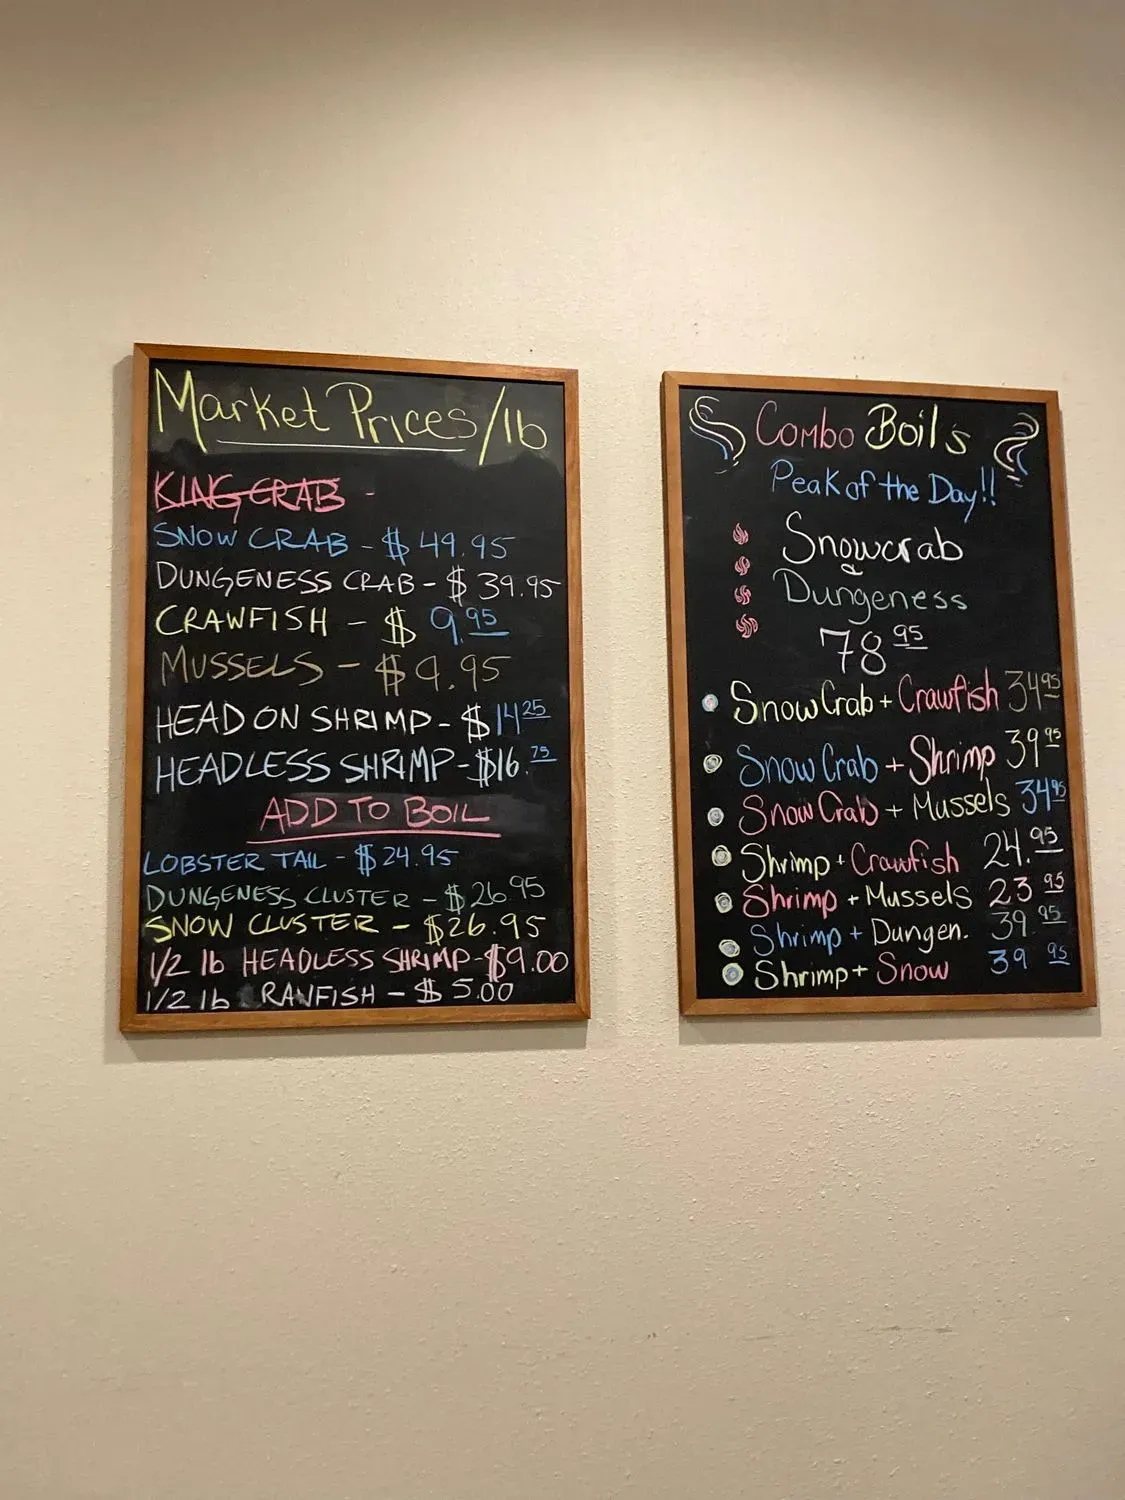 Market Prices/lb
KING CRAB -
SNOW CRAB - $ 49.95
DUNGENESS CRAB - $ 39.95
CRAWFISH - $ 9.95
MUSSELS - $9.95
HEAD ON SHRIMP - $14.25
HEADLESS SHRIMP - $16.75
ADD TO BOIL
LOBSTER TAIL - $24.95
DUNGENESS CLUSTER - $26.95
SNOW CLUSTER - $26.95
1/2 lb HEADLESS SHRIMP - $9.00
1/2 lb RAWFISH - $5.00
Combo Boil's
Peak of the Day!!
Snowcrab
&
Dungeness
78.95
Snow Crab + Crawfish 34.95
Snow Crab + Shrimp 39.95
Snow Crab + Mussels 34.95
Shrimp + Crawfish 24.95
Shrimp + Mussels 23.95
Shrimp + Dungen. 39.95
Shrimp + Snow 39.95